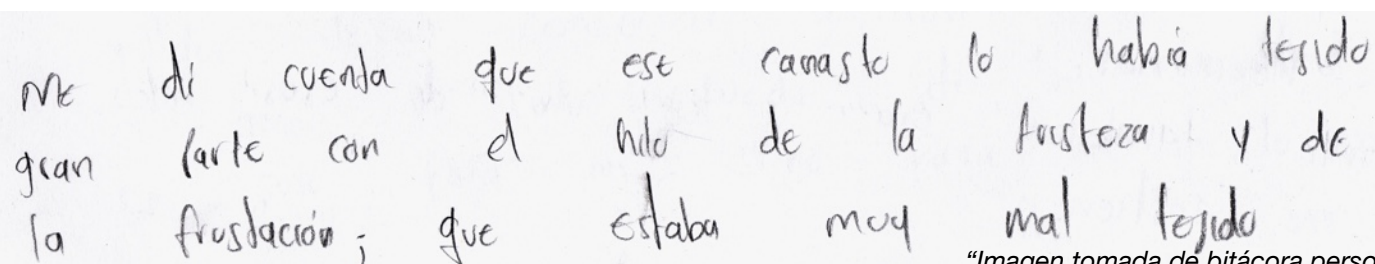 Me di cuenta que ese canasto lo había tejido
gran parte con el hilo de la tristeza y de
la frustación; que estaba muy mal tejido
“Imagen tomada de bitácora perso